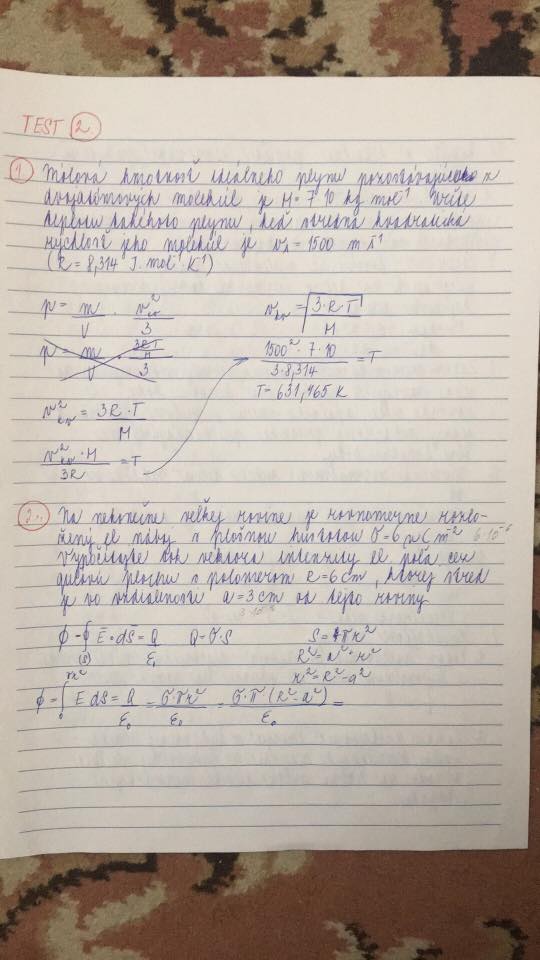 TEST 2.
1. Mólová hmotnosť ideálneho plynu pozostávajúceho z
dvojatómových molekúl je M = 7·10 kg mol⁻¹ Určte
teplotu takéhoto plynu, keď stredná kvadratická
rýchlosť jeho molekúl je vₖ = 1500 m s⁻¹
(R = 8,314 J·mol⁻¹ K⁻¹)
p = m/V · v²ₖᵥ/3
vₖᵥ = √(3·R·T/M)
p = m/V · (3RT/M)/3
1500²·7·10/3·8,314 = T
T = 631,465 K
v²ₖᵥ = 3R·T/M
v²ₖᵥ·M/3R = T
2. Na nekonečne veľkej rovine je rovnomerne rozlo-
žený el náboj s plošnou hustotou σ = 6 μC m⁻² 6·10⁻⁶
Vypočítajte tok vektora intenzity el poľa cez
guľovú plochu s polomerom R = 6 cm, ktorej stred
je vo vzdialenosti a = 3 cm od tejto roviny
ϕ = ∮(S) E·dS = Q/ε₀ Q = σ·S S = πr²
R² = a² + r²
r² = R² - a²
ϕ = ∫₀^πr² E dS = Q/ε₀ = σ·πr²/ε₀ = σ·π(R² - a²)/ε₀ =